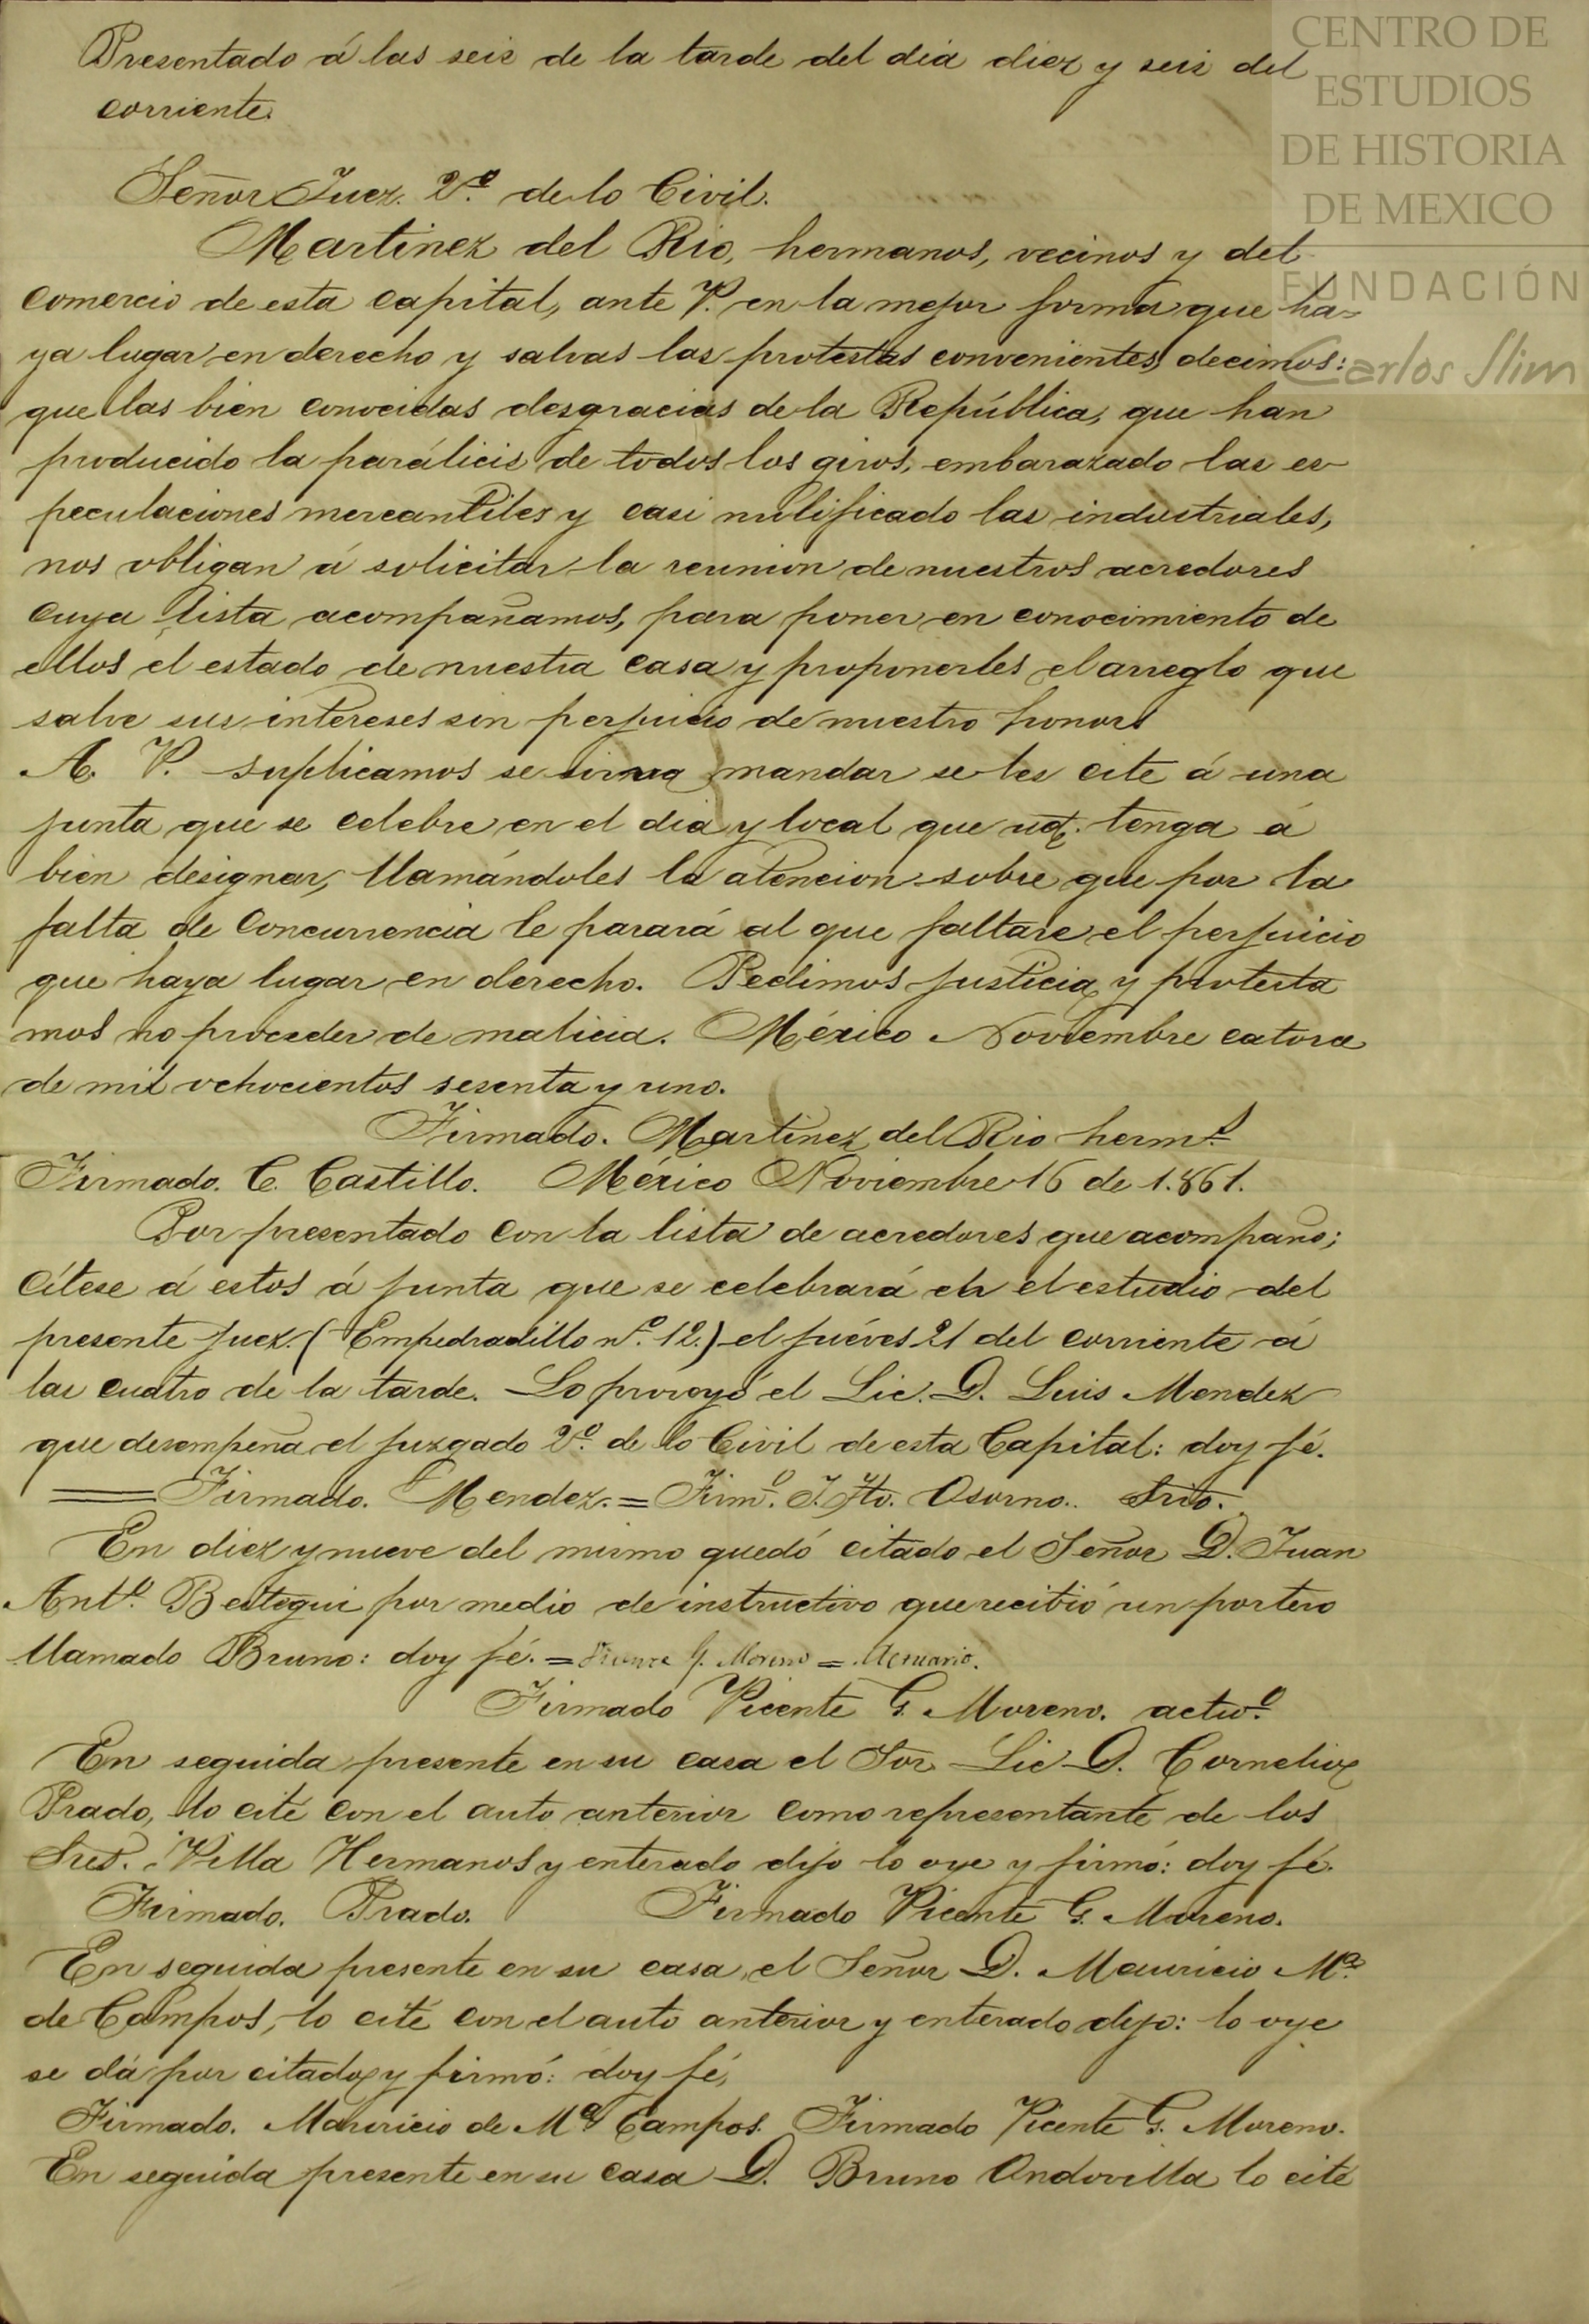 CENTRO DE
ESTUDIOS
DE HISTORIA
DE MEXICO
FUNDACIÓN
Carlos Slim
Presentado á las seis de la tarde del dia diez y seis del
corriente.
Señor Juez. 2º. de lo Civil.
Martinez del Rio, hermanos, vecinos y del
comercio de esta capital, ante V. en la mejor forma que ha-
ya lugar en derecho y salvas las protestas convenientes, decimos:
que las bien conocidas desgracias de la República, que han
producido la parálicis de todos los giros, embarazado las es-
peculaciones mercantiles y casi nulificado las industriales,
nos obligan á solicitar la reunion de nuestros acredores
cuya lista acompañamos, para poner en conocimiento de
ellos el estado de nuestra casa y proponerles el arreglo que
salve sus intereses sin perjuicio de nuestro honor.
A. V. suplicamos se sirva mandar se les cite á una
junta que se celebre en el dia y local que ud. tenga á
bien designar, llamándoles la atencion sobre que por la
falta de concurrencia le parará al que faltare el perjuicio
que haya lugar en derecho. Pedimos justicia y protesta
mos no proceder de malicia. México Noviembre catorce
de mil ochocientos sesenta y uno.
Firmado. Martinez del Rio hermˢ.
Firmado. C. Castillo. México Noviembre 16 de 1.861.
Por presentado con la lista de acredores que acompaño;
cítese á estos á junta que se celebrará en el estudio del
presente juez. (Empedradillo nº. 12.) el juéves 21 del corriente á
las cuatro de la tarde. Lo proveyó el Lic. D. Luis Mendez
que desempeña el juzgado 2º. de lo Civil de esta Capital: doy fé.
== Firmado. Mendez. = Firmº. Osorno. Srio.
En diez y nueve del mismo quedó citado el Señor D. Juan
Antº. Beitegui por medio de instructivo que recibió un portero
llamado Bruno: doy fé. = Vicente G. Moreno = Actuario.
Firmado Vicente G. Moreno. actuº.
En seguida presente en su casa el Sor. Lic D. Cornelio
Prado, lo cité con el auto anterior como representante de los
Sres. Villa Hermanos y enterado dijo lo oye y firmó: doy fé.
Firmado. Prado. Firmado Vicente G. Moreno.
En seguida presente en su casa, el Señor D. Mauricio Mª.
de Campos, lo cité con el auto anterior y enterado dijo: lo oye
se dá por citado y firmó: doy fé,
Firmado. Mauricio de Mª. Campos. Firmado Vicente G. Moreno.
En seguida presente en su casa D. Bruno Andovilla lo cité